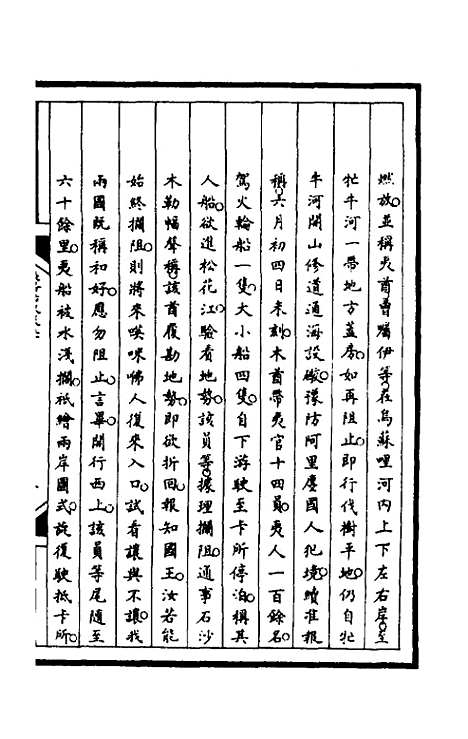 燃放並稱夷酋曾囑伊等在烏蘇哩河內上下左右岸至
牤牛河一帶地方蓋房如再阻止即行伐樹平地仍自牤
牛河開山修道通海設礮豫防阿里慶國人犯境續准報
稱六月初四日未刻木酋帶夷官十四員夷人一百餘名
駕火輪船一隻大小船四隻自下游駛至卡所停泊稱其
人船欲進松花江驗看地勢該員等據理攔阻通事石沙
木勒幅聲稱該酋履勘地勢即欲折回報知國王汝若能
始終攔阻則將來𠸄咪咈人復來入口試看讓與不讓我
兩國既稱和好應勿阻止言畢開行西上該員等尾隨至
六十餘里夷船被水淺攔祇繪兩岸圖式旋復駛抵卡所